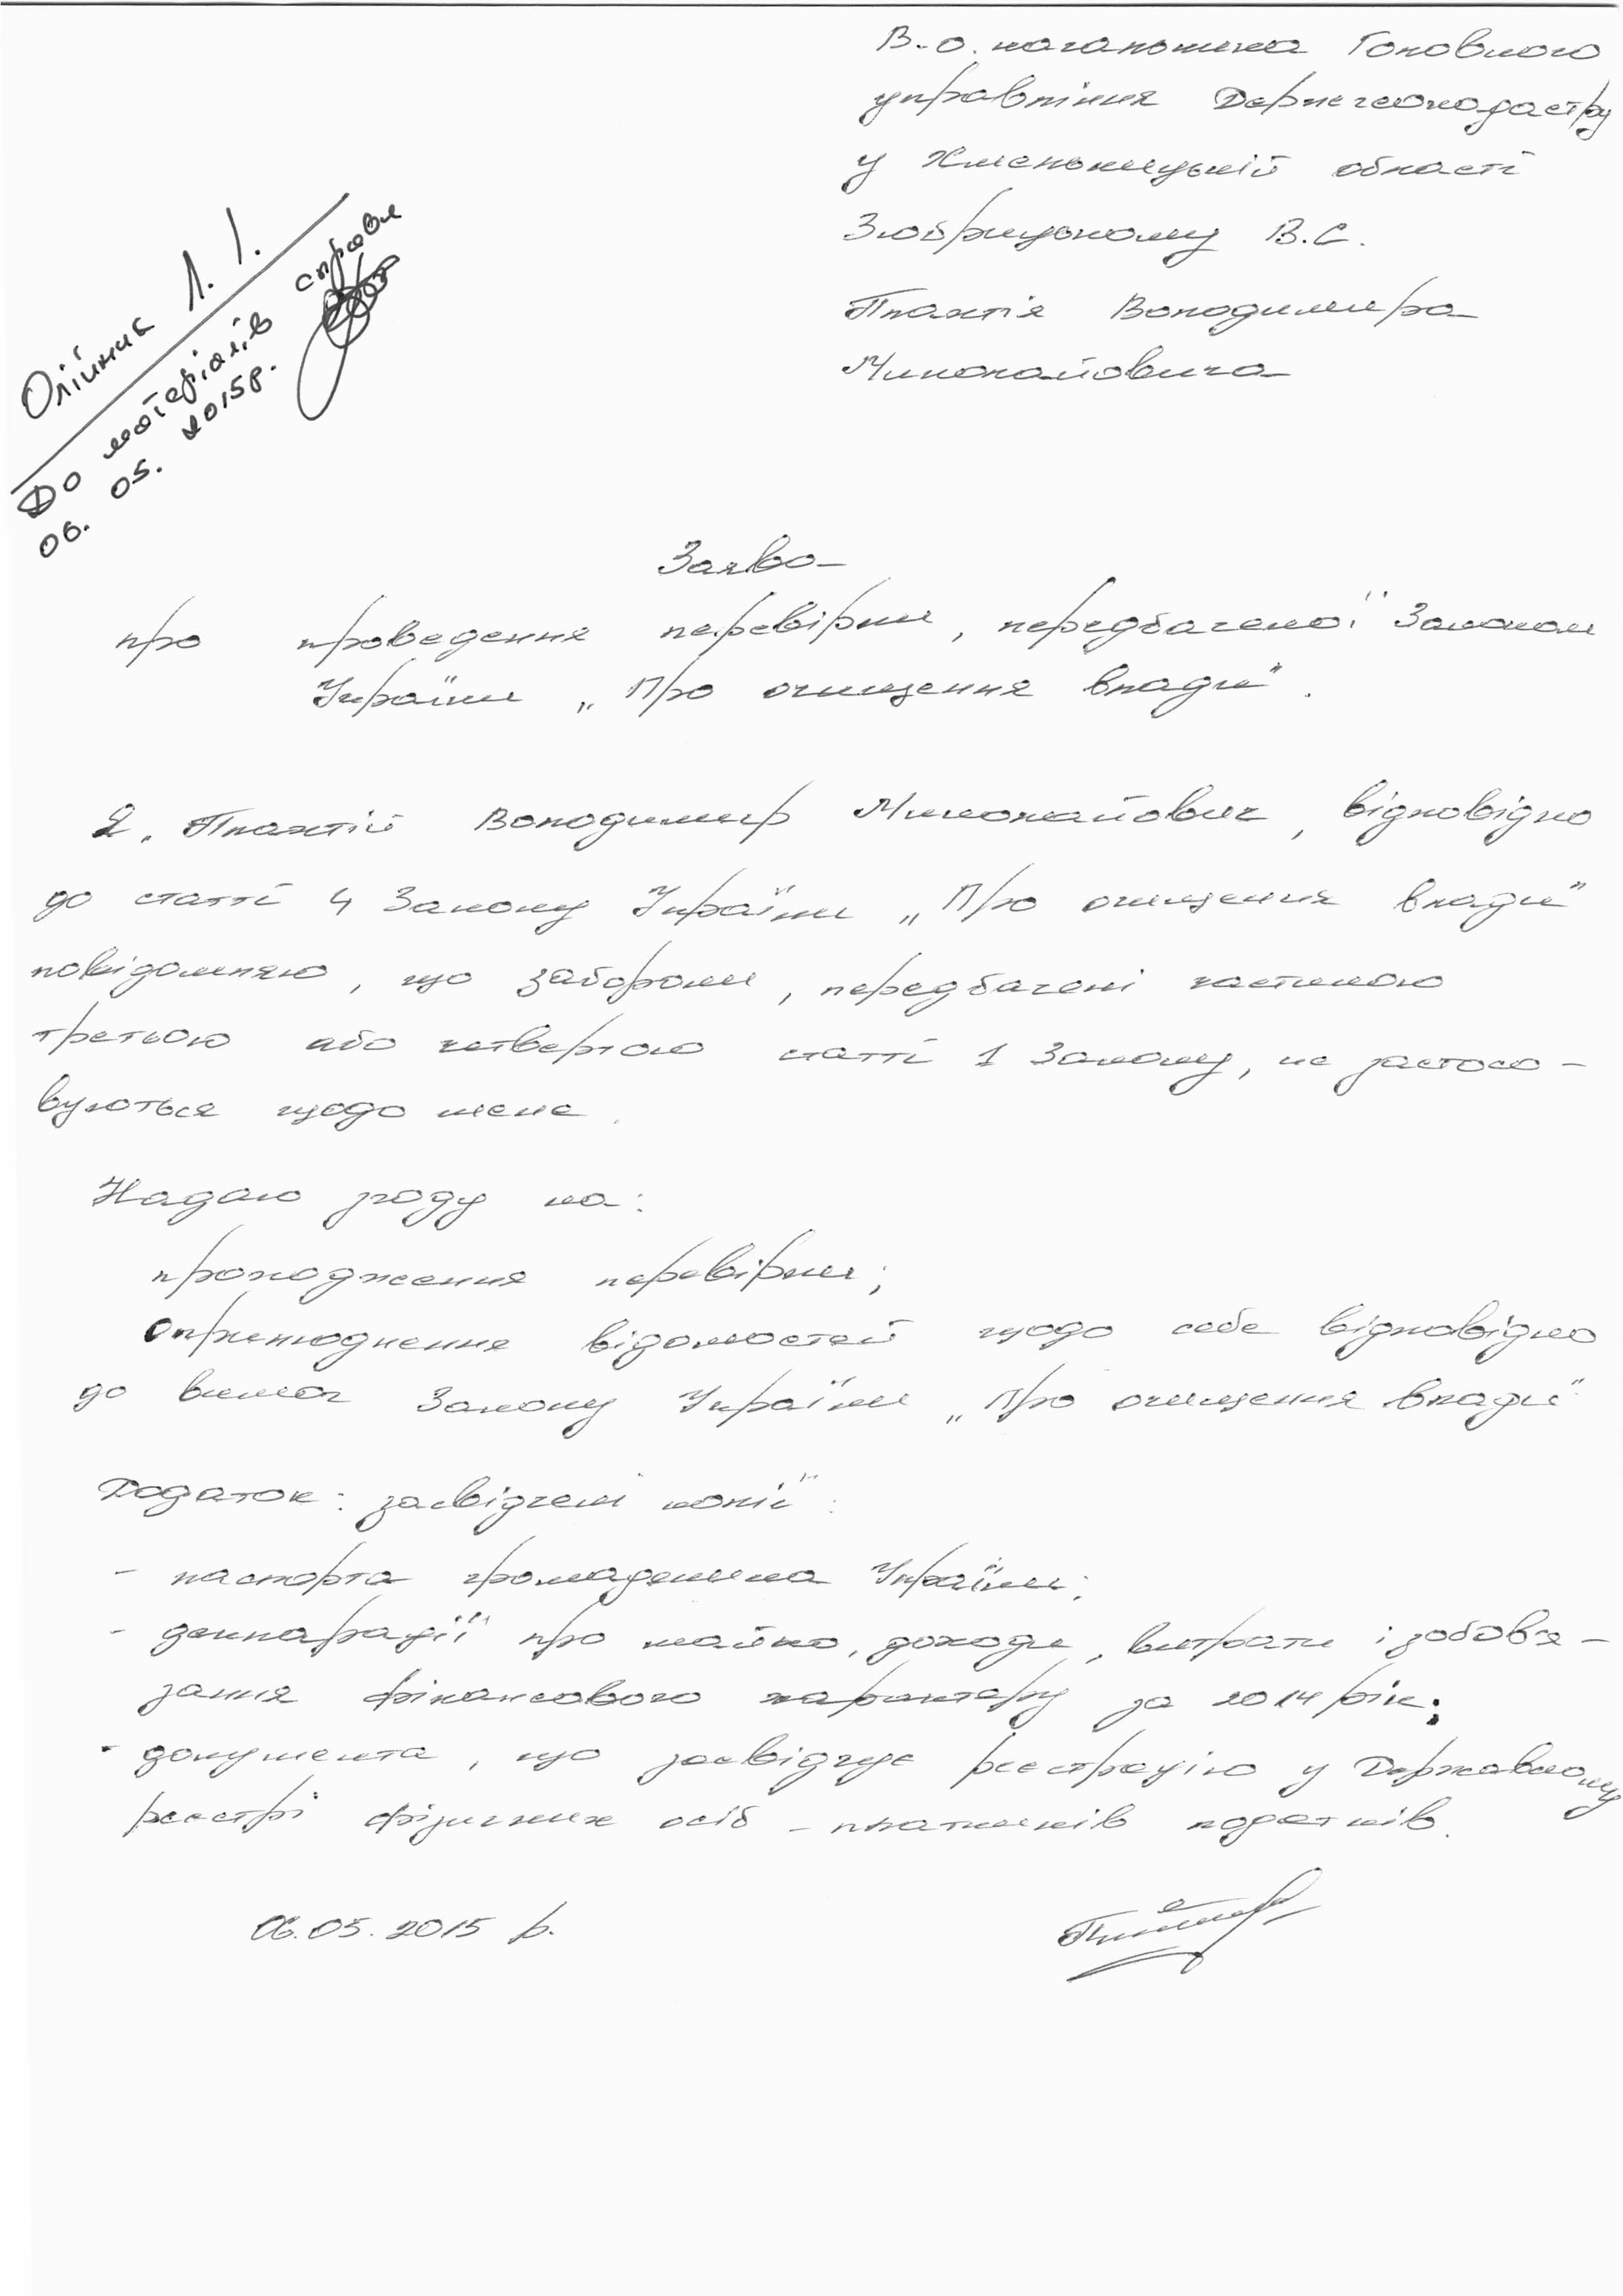 В.о. начальника Головного
управління Держгеокадастру
у Хмельницькій області
Зюбрицькому В.С.
Плахтія Володимира
Миколайовича
Олійник І. І.
До матеріалів справи
06. 05. 2015р.
Заява
про проведення перевірки, передбаченої Законом
України „Про очищення влади".
Я, Плахтій Володимир Миколайович, відповідно
до статті 4 Закону України „Про очищення влади"
повідомляю, що заборони, передбачені частиною
третьою або четвертою статті 1 Закону, не застосо-
вуються щодо мене.
Надаю згоду на:
проходження перевірки;
оприлюднення відомостей щодо себе відповідно
до вимог Закону України „Про очищення влади"
Додаток: засвідчені копії:
- паспорта громадянина України;
- декларації про майно, доходи, витрати і зобов'я-
зання фінансового характеру за 2014 рік;
- документа, що засвідчує реєстрацію у Державному
реєстрі фізичних осіб - платників податків.
06.05.2015 р.